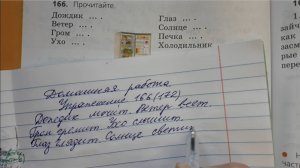 166. Прочитайте.
Дождик ... . Глаз ... .
Ветер ... . Солнце ... .
Гром ... . Печка ... .
Ухо ... . Холодильник
Домашняя работа
Упражнение 166 (172)
Дождик моит. Ветер веет.
Гром гремит. Ухо слышит.
Глаз глядит. Солнце светит